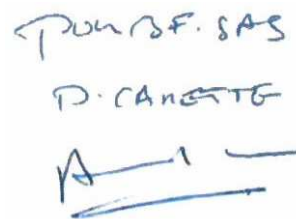 Pour B.F. SAS
D. CANETTE